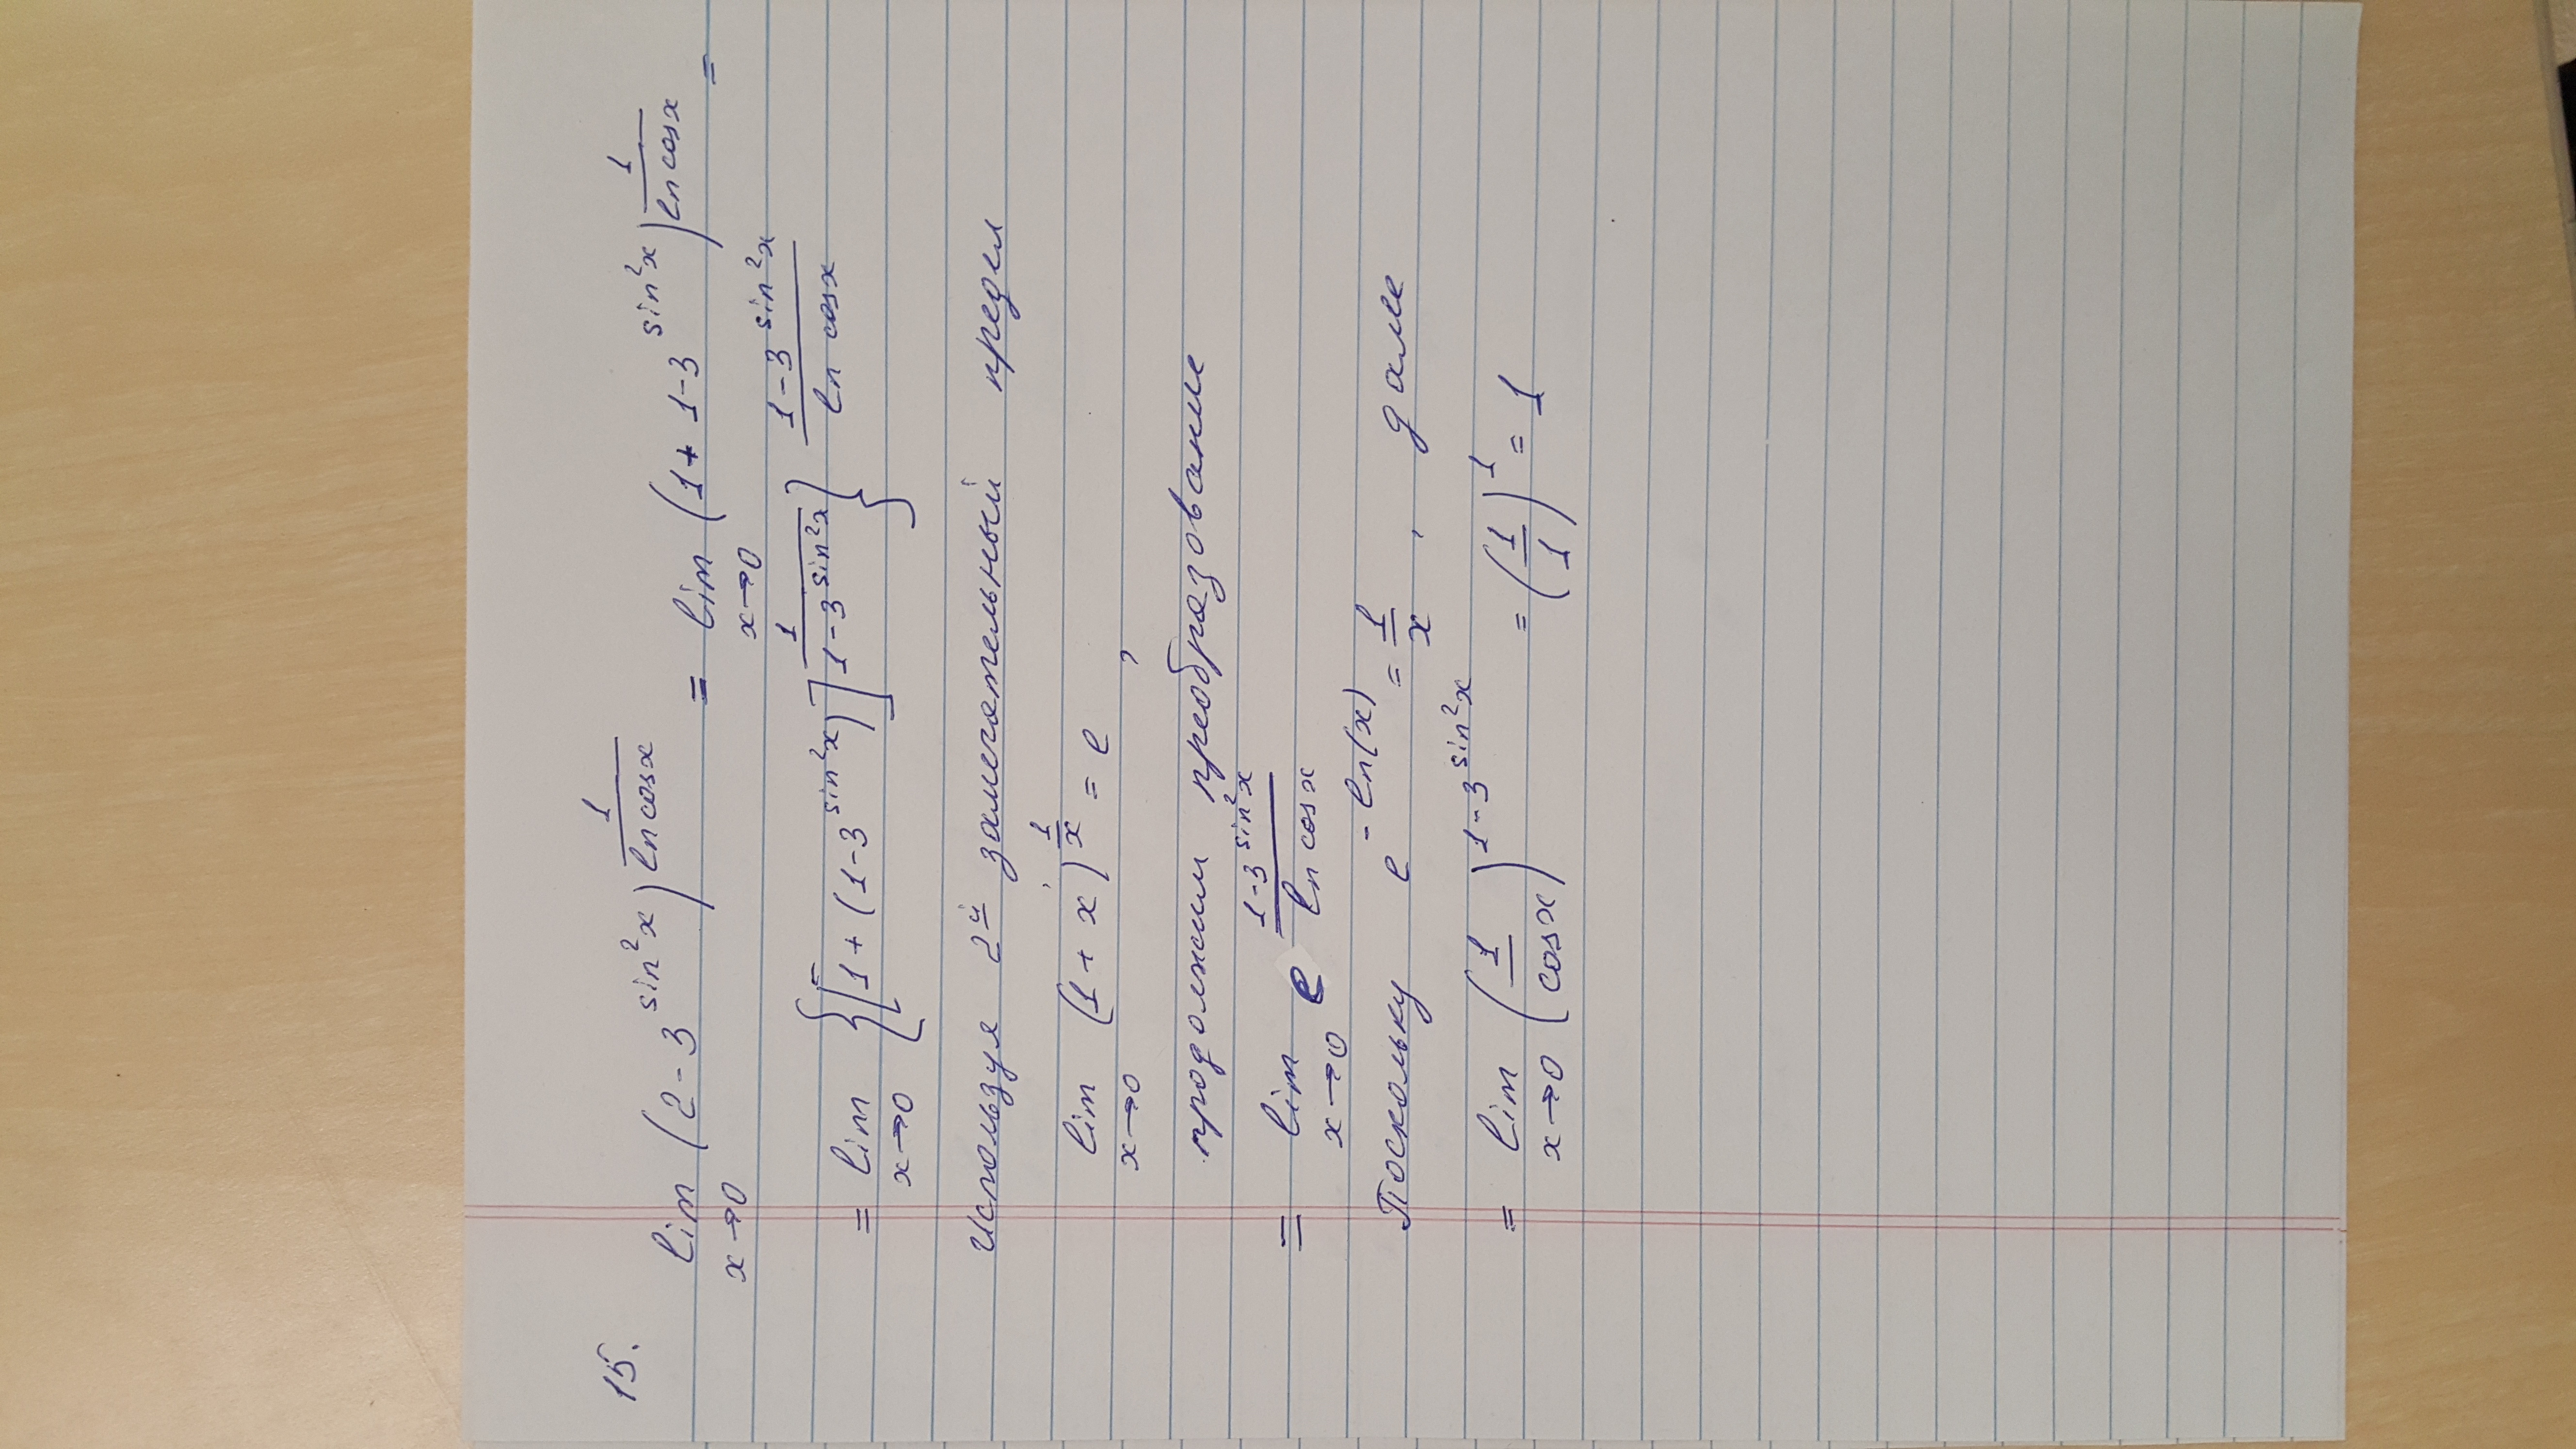 15.
lim x→0 (2-3^(sin²x))^(1/(ln cosx)) = lim x→0 (1+1-3^(sin²x))^(1/(ln cosx)) =
= lim x→0 {[1+(1-3^(sin²x))]^(1/(1-3^(sin²x)))}^((1-3^(sin²x))/(ln cosx))
Используя 2й замечательный предел
lim x→0 (1+x)^(1/x) = e,
продолжим преобразование
= lim x→0 e^((1-3^(sin²x))/(ln cosx))
Поскольку e^(-ln(x)) = 1/x, далее
= lim x→0 (1/cosx)^(1-3^(sin²x)) = (1/1)^1 = 1